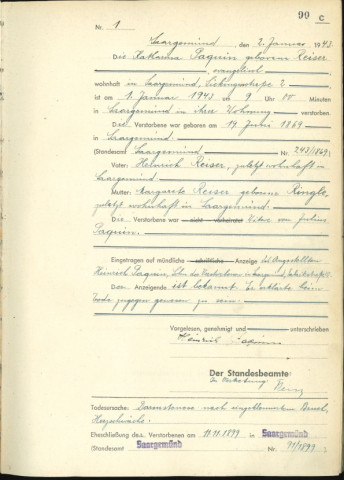 90 C
Nr. 1
Saargemünd, den 2. Januar 1943
Die Katharina Paquin geborene Reiser
evangelisch
wohnhaft in Saargemünd, 2
ist am 1. Januar 1943 um 9 Uhr 00 Minuten
in Saargemünd in ihrer Wohnung verstorben.
Die Verstorbene war geboren am 14. Juni 1869
in Saargemünd.
(Standesamt Saargemünd Nr. 243/1869)
Vater: Heinrich Reiser, zuletzt wohnhaft in
Saargemünd
Mutter: Margarete Reiser geborene Ringle,
zuletzt wohnhaft in Saargemünd.
Die Verstorbene war nicht verheiratet Witwe von
Paquin.
Eingetragen auf mündliche schriftliche Anzeige des Angestellten
Heinrich Paquin, Sohn der Verstorbenen in Saargemünd
Der Anzeigende ist bekannt. Er erklärte beim
Tode zugegen gewesen zu sein.
Vorgelesen, genehmigt und unterschrieben
Heinrich Paquin
Der Standesbeamte
In Vertretung
Todesursache: nach eingeklemmtem Bruch,
Herzschwäche.
Eheschließung der Verstorbenen am 11.11.1899 in Saargemünd
(Standesamt Saargemünd Nr. 91/1899)